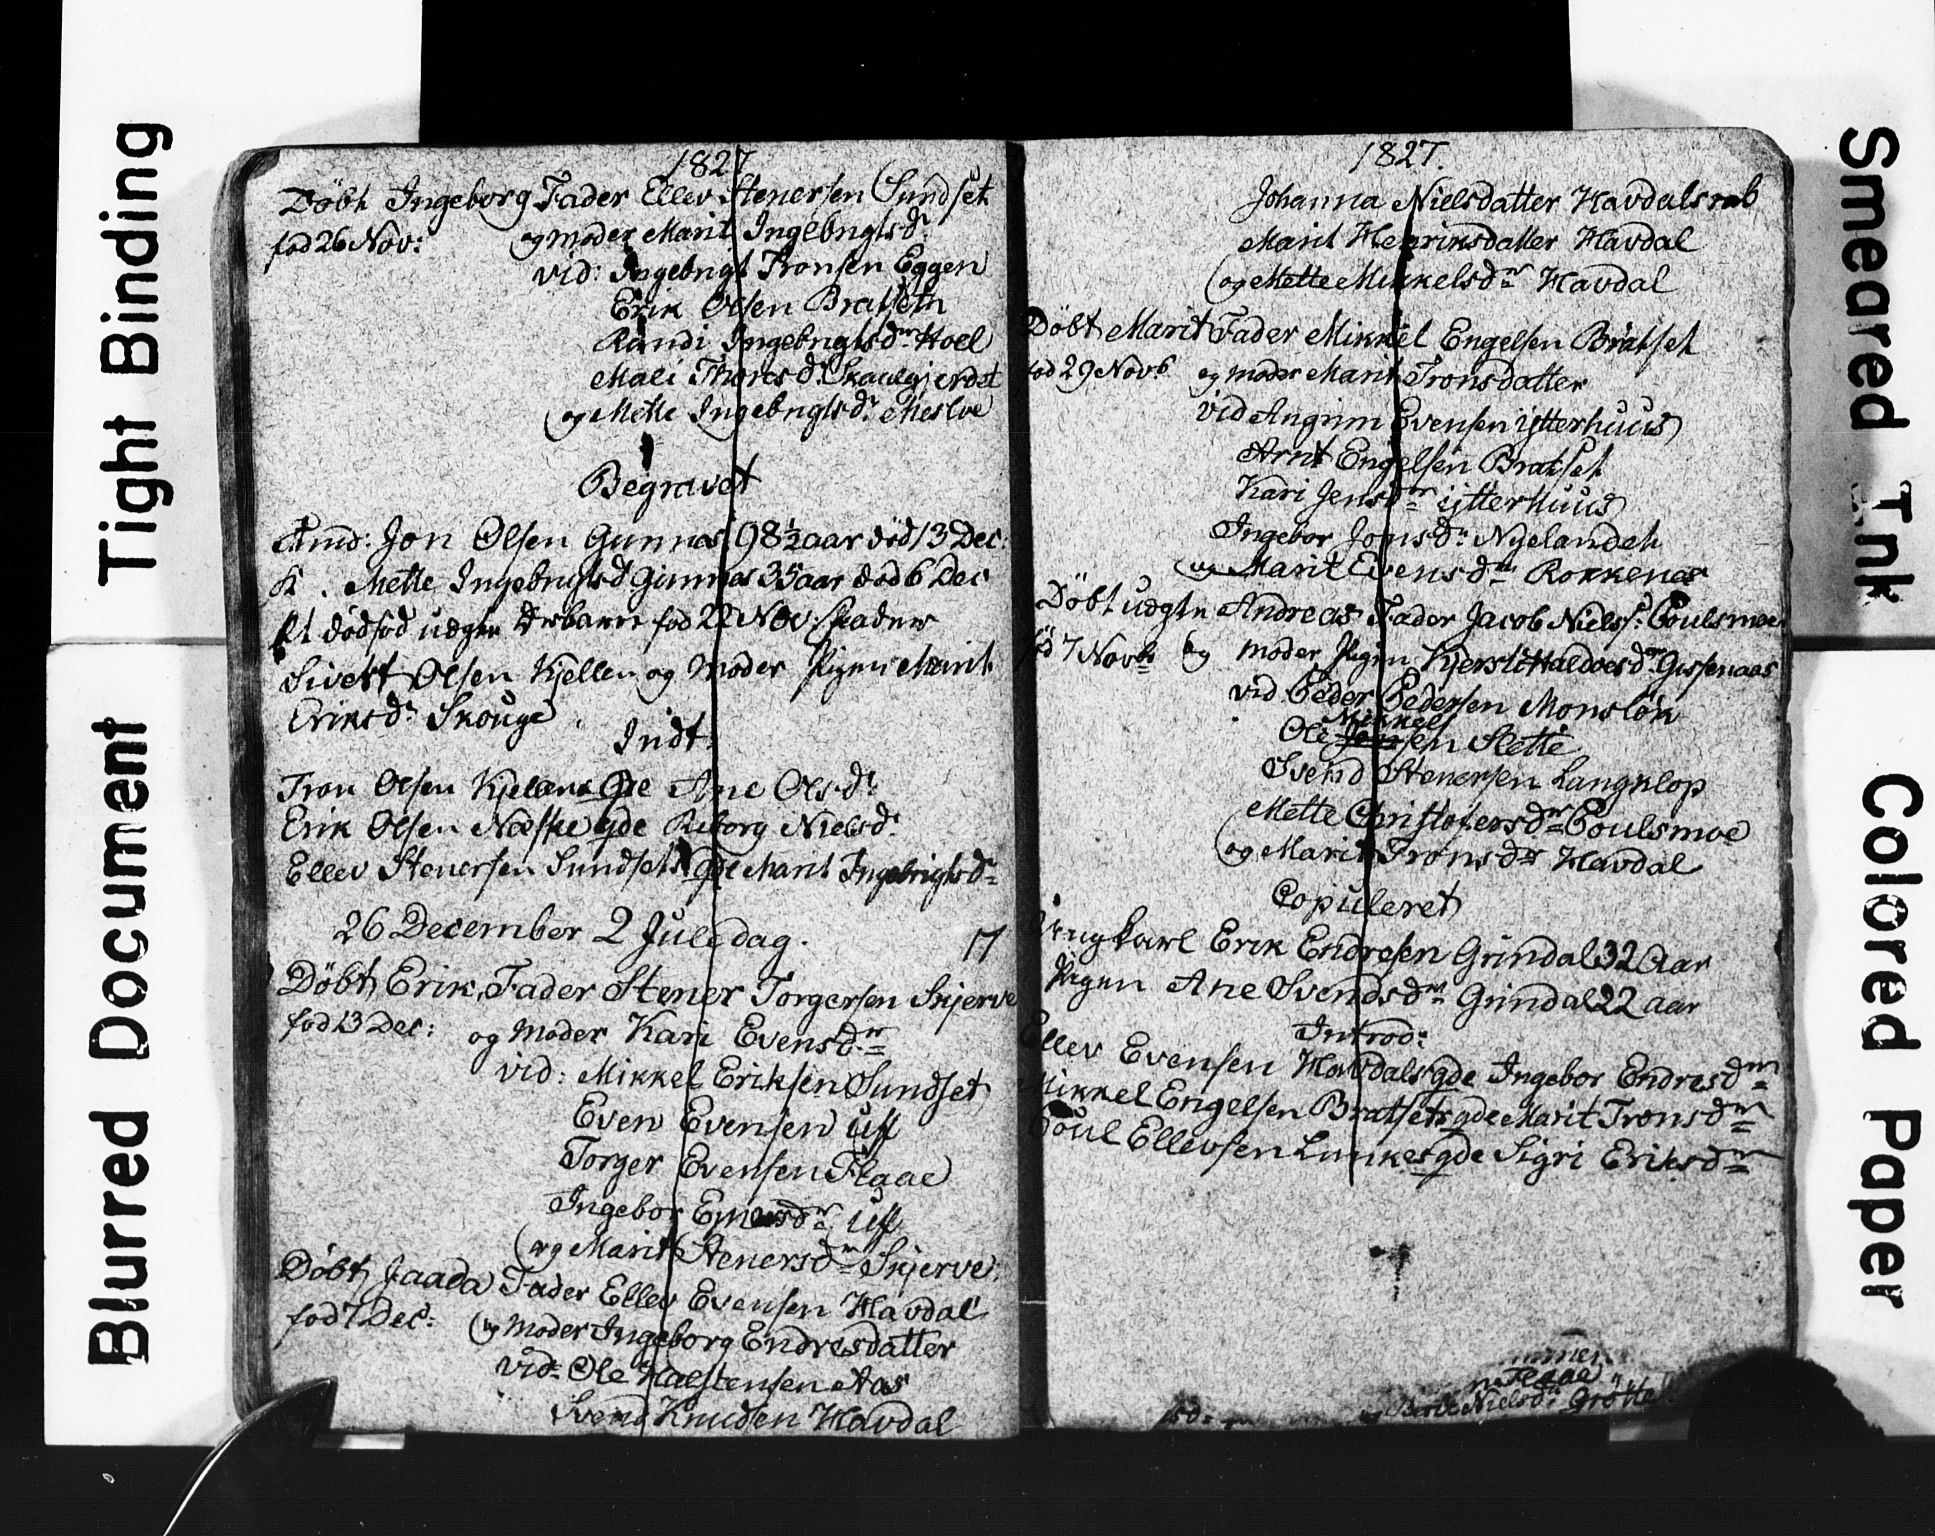 Tight Binding
Blurred Document
1827
Döbt Ingeborg Fader Ellev Stenersen Sundset
fød 26 Nov: og moder Marit Ingebrigtsdr
vid: Ingebrigt Tronsen Eggen
Erik Olsen Bratseth
Randi Ingebrigtsdr Hoel
Mali Thoresdr Skaulgjerdet
og Mette Ingebrigtsdr Mesloe
Begravet
Jon Olsen Gunnes 98½ aar död 13 Dec:
K. Mette Ingebrigtsd Gunnes 35 aar död 6 Dec
Et dödfød uægte fød 22 Nov: Fader
Sivert Olsen Kjellen og Moder Pigen Marit
Eriksdr Skouge
Indt:
Tron Olsen Kjellens Qde Ane Olsdr
Erik Olsen Næske qde Reborg Nielsd:
Ellev Stenersen Sundsets Qde Marit Ingebrigtsdr
26 December 2 Juledag. 17
Döbt Erik, Fader Stener Torgersen Skjerve
fød 13 Dec: og Moder Kari Evensdr
vid: Mikkel Eriksen Sundset
Even Evensen Uff
Torger Evensen Flaae
Ingebor Uff
og Marit Stenersdr Skjerve
Döbt Jaada Fader Ellev Evensen Havdal
fød 7 Dec: og Moder Ingeborg Endresdatter
vid: Ole Halstensen Aas
Svend Knudsen Havdal
1827.
Johanna Nielsdatter Havdalsrab
Marit Henriksdatter Havdal
og Mette Mikkelsdr Havdal
Döbt Marit Fader Mikkel Engelsen Bratset
fød 29 Novb og moder Marit Tronsdatter
vid Angrim Evensen ytterhuus
Arnt Engelsen Bratset
Kari Jensdr ytterhuus
Ingebor Jonsdr Nyelandeh
og Marit Evensdr Rokkenes
Döbt uægte Andreas Fader Jacob Niels: Poulsmoe
fød 7 Novb og moder Pigen Kjersti Haldoesdr Gissenaas
vid Peder Pedersen Monsløk
Mikkel
Ole Jensen Slette
Svend Stenersen Langklop
Mette Christofersdr Poulsmoe
og Marit Tronsdr Havdal
Copuleret
Ungkarl Erik Endresen Grindal 32 Aar
Pigen Ane Svendsdr Grindal 22 aar
Introd:
Ellev Evensen Havdals qde Ingebor Endresdr
Mikkel Engelsen Bratsets qde Marit Tronsdr
Poul Ellevsen Lunkes qde Sigri Eriksdr
Flaae
Berit Nielsdr Grötte
Smeared Ink
Colored Paper